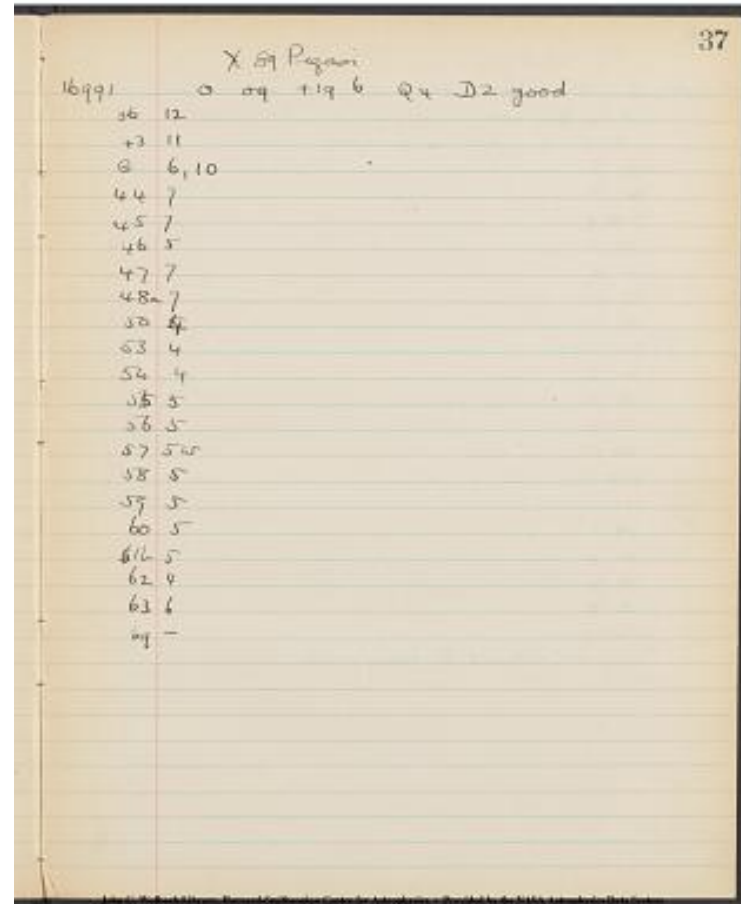 37
X 59 Pegasi
16991 0 09 +19 6 Q4 D2 good
36 12
+3 11
G 6, 10
44 7
45 7
46 5
47 7
48a 7
50 4
53 4
54 4
55 5
56 5
57 5w
58 5
59 5
60 5
61 5
62 4
63 6
69 —